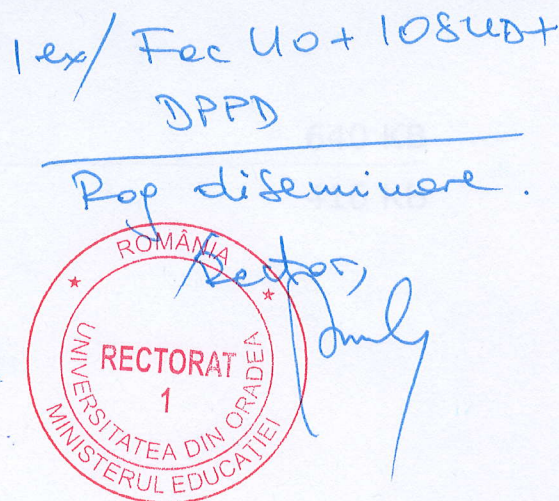 1 ex/ Fac UO + IOSUD +
DPPD
Rog diseminare.
Rector,
ROMÂNIA
MINISTERUL EDUCAȚIEI
UNIVERSITATEA DIN ORADEA
RECTORAT
1